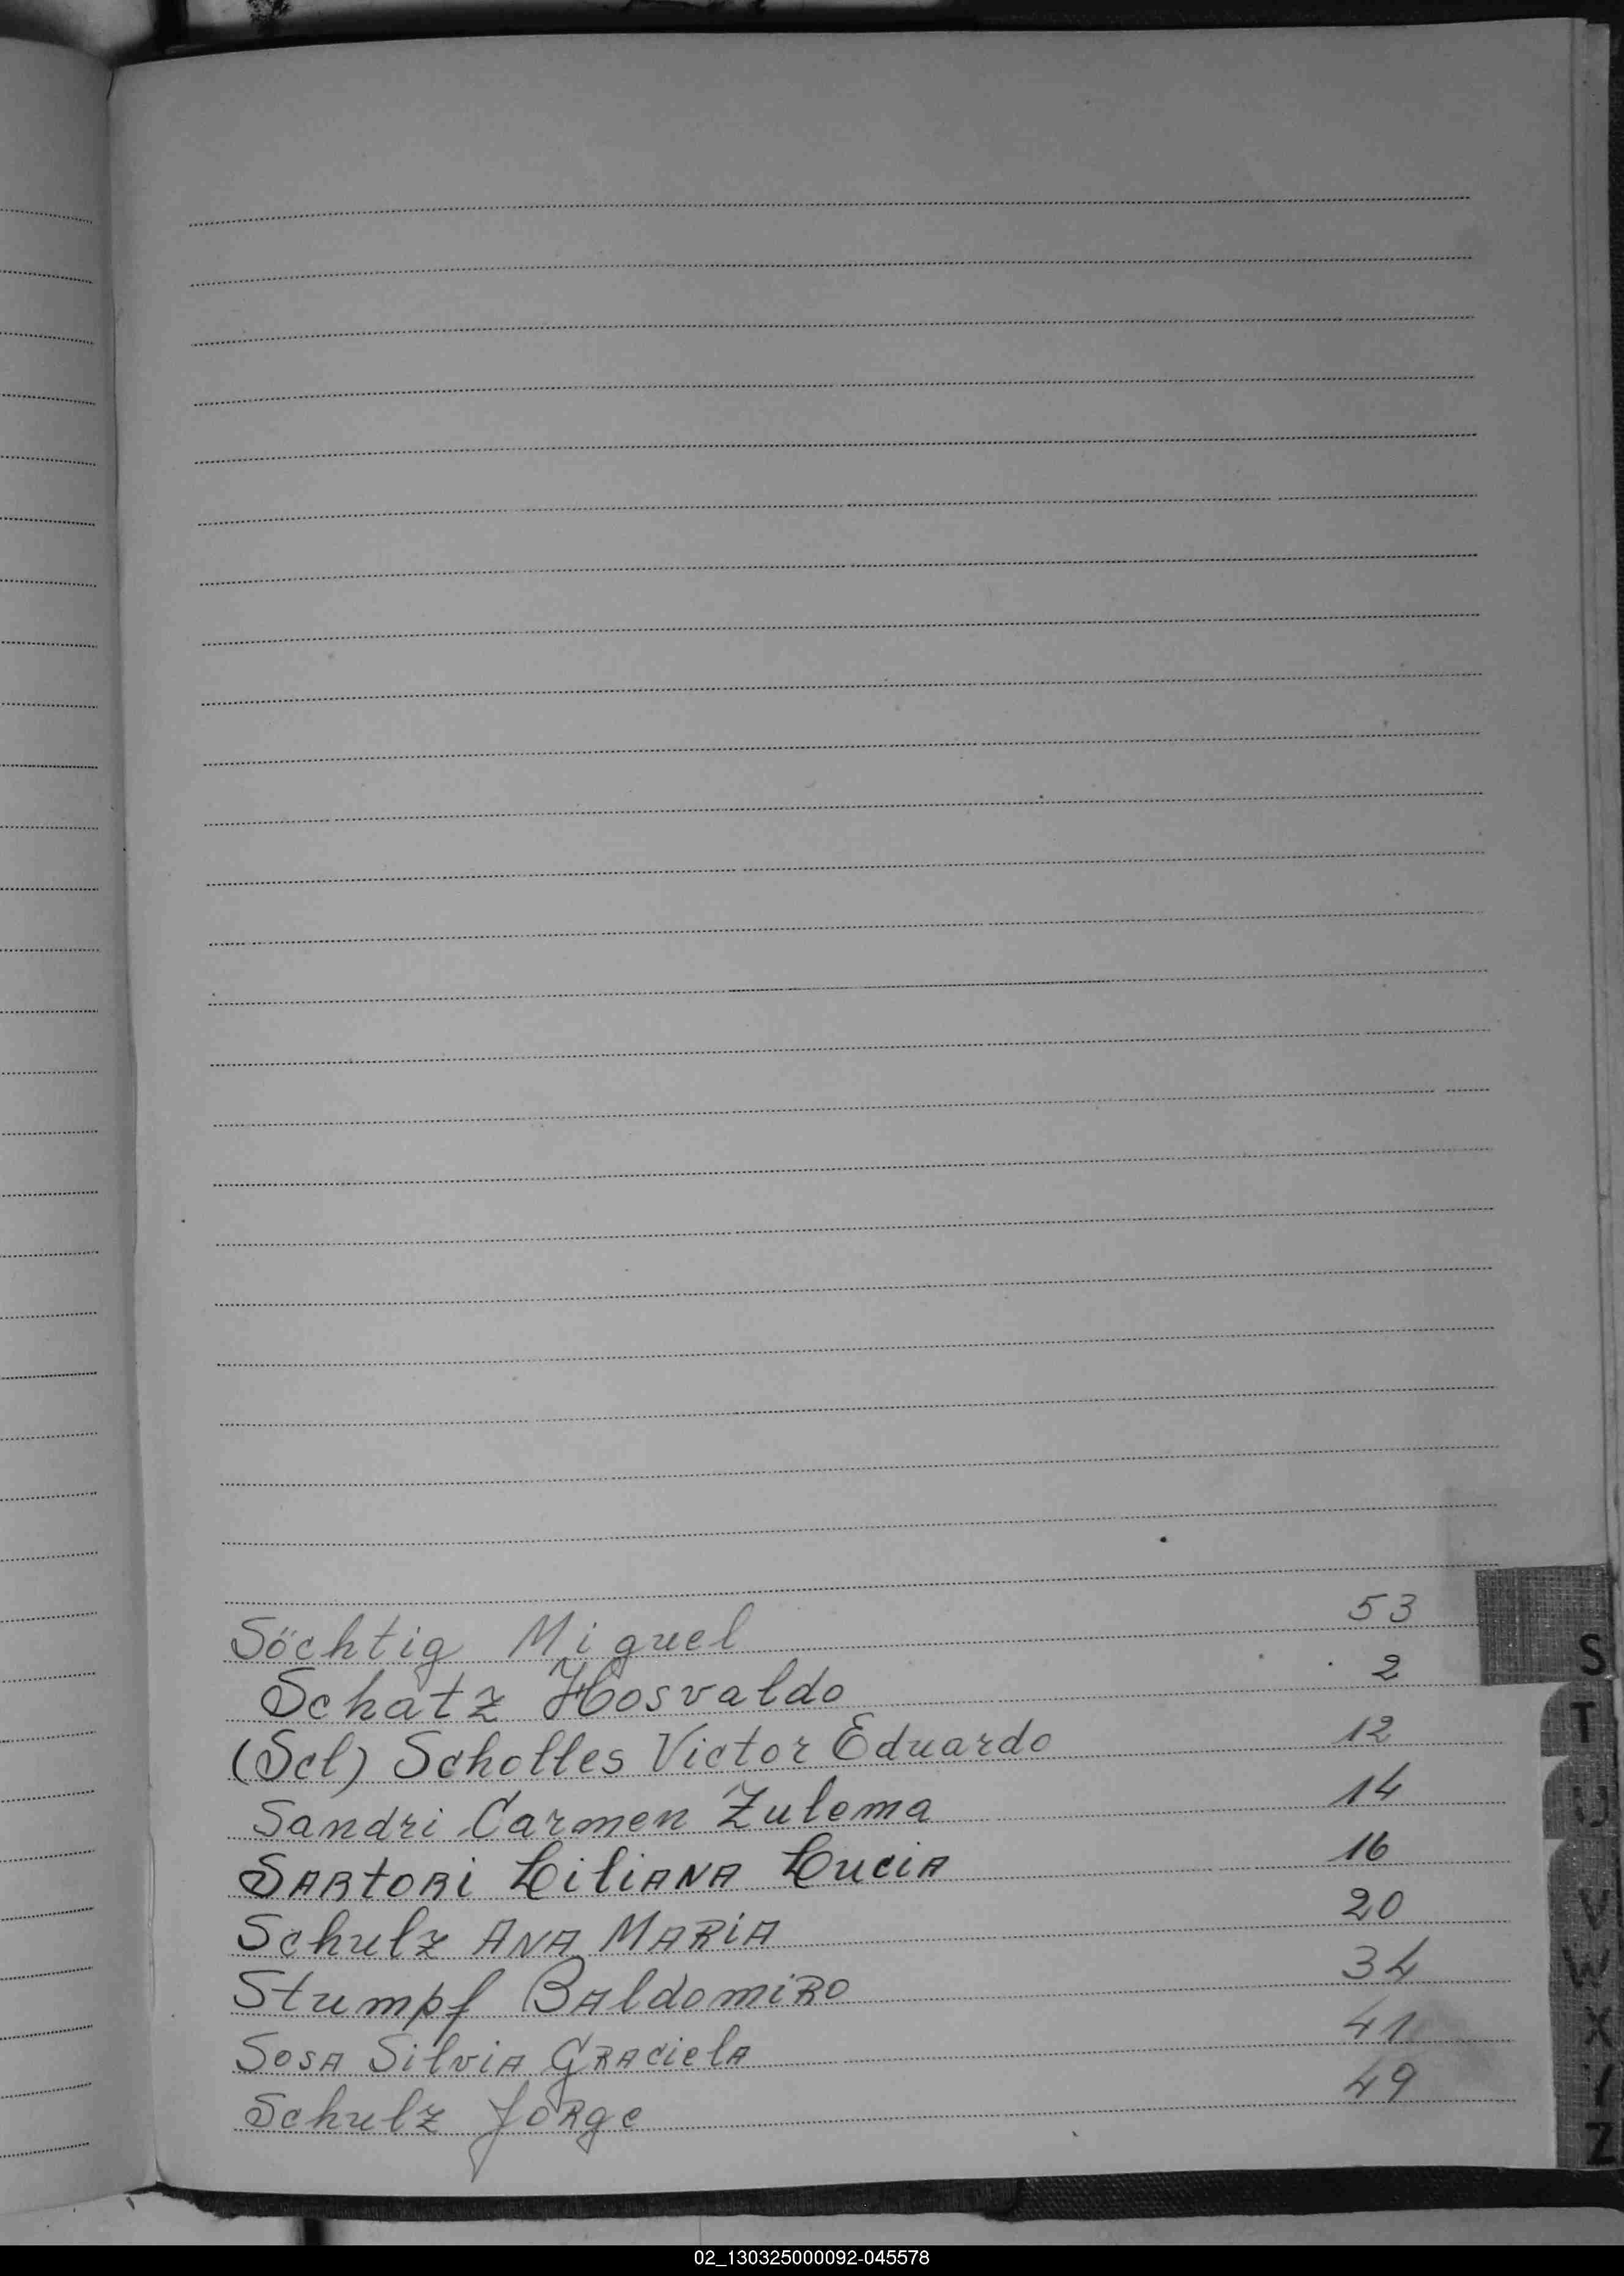 Söchtig Miguel 53
Schatz Hosvaldo 2
(Scl) Scholles Victor Eduardo 12
Sandri Carmen Zulema 14
SARTORi LiliANA LuciA 16
Schulz ANA MARiA 20
Stumpf BAldomiRo 34
SosA SilviA GRAcielA 41
Schulz JoRge 49
S
T
U
V
W
X
Y
Z
02_130325000092-045578